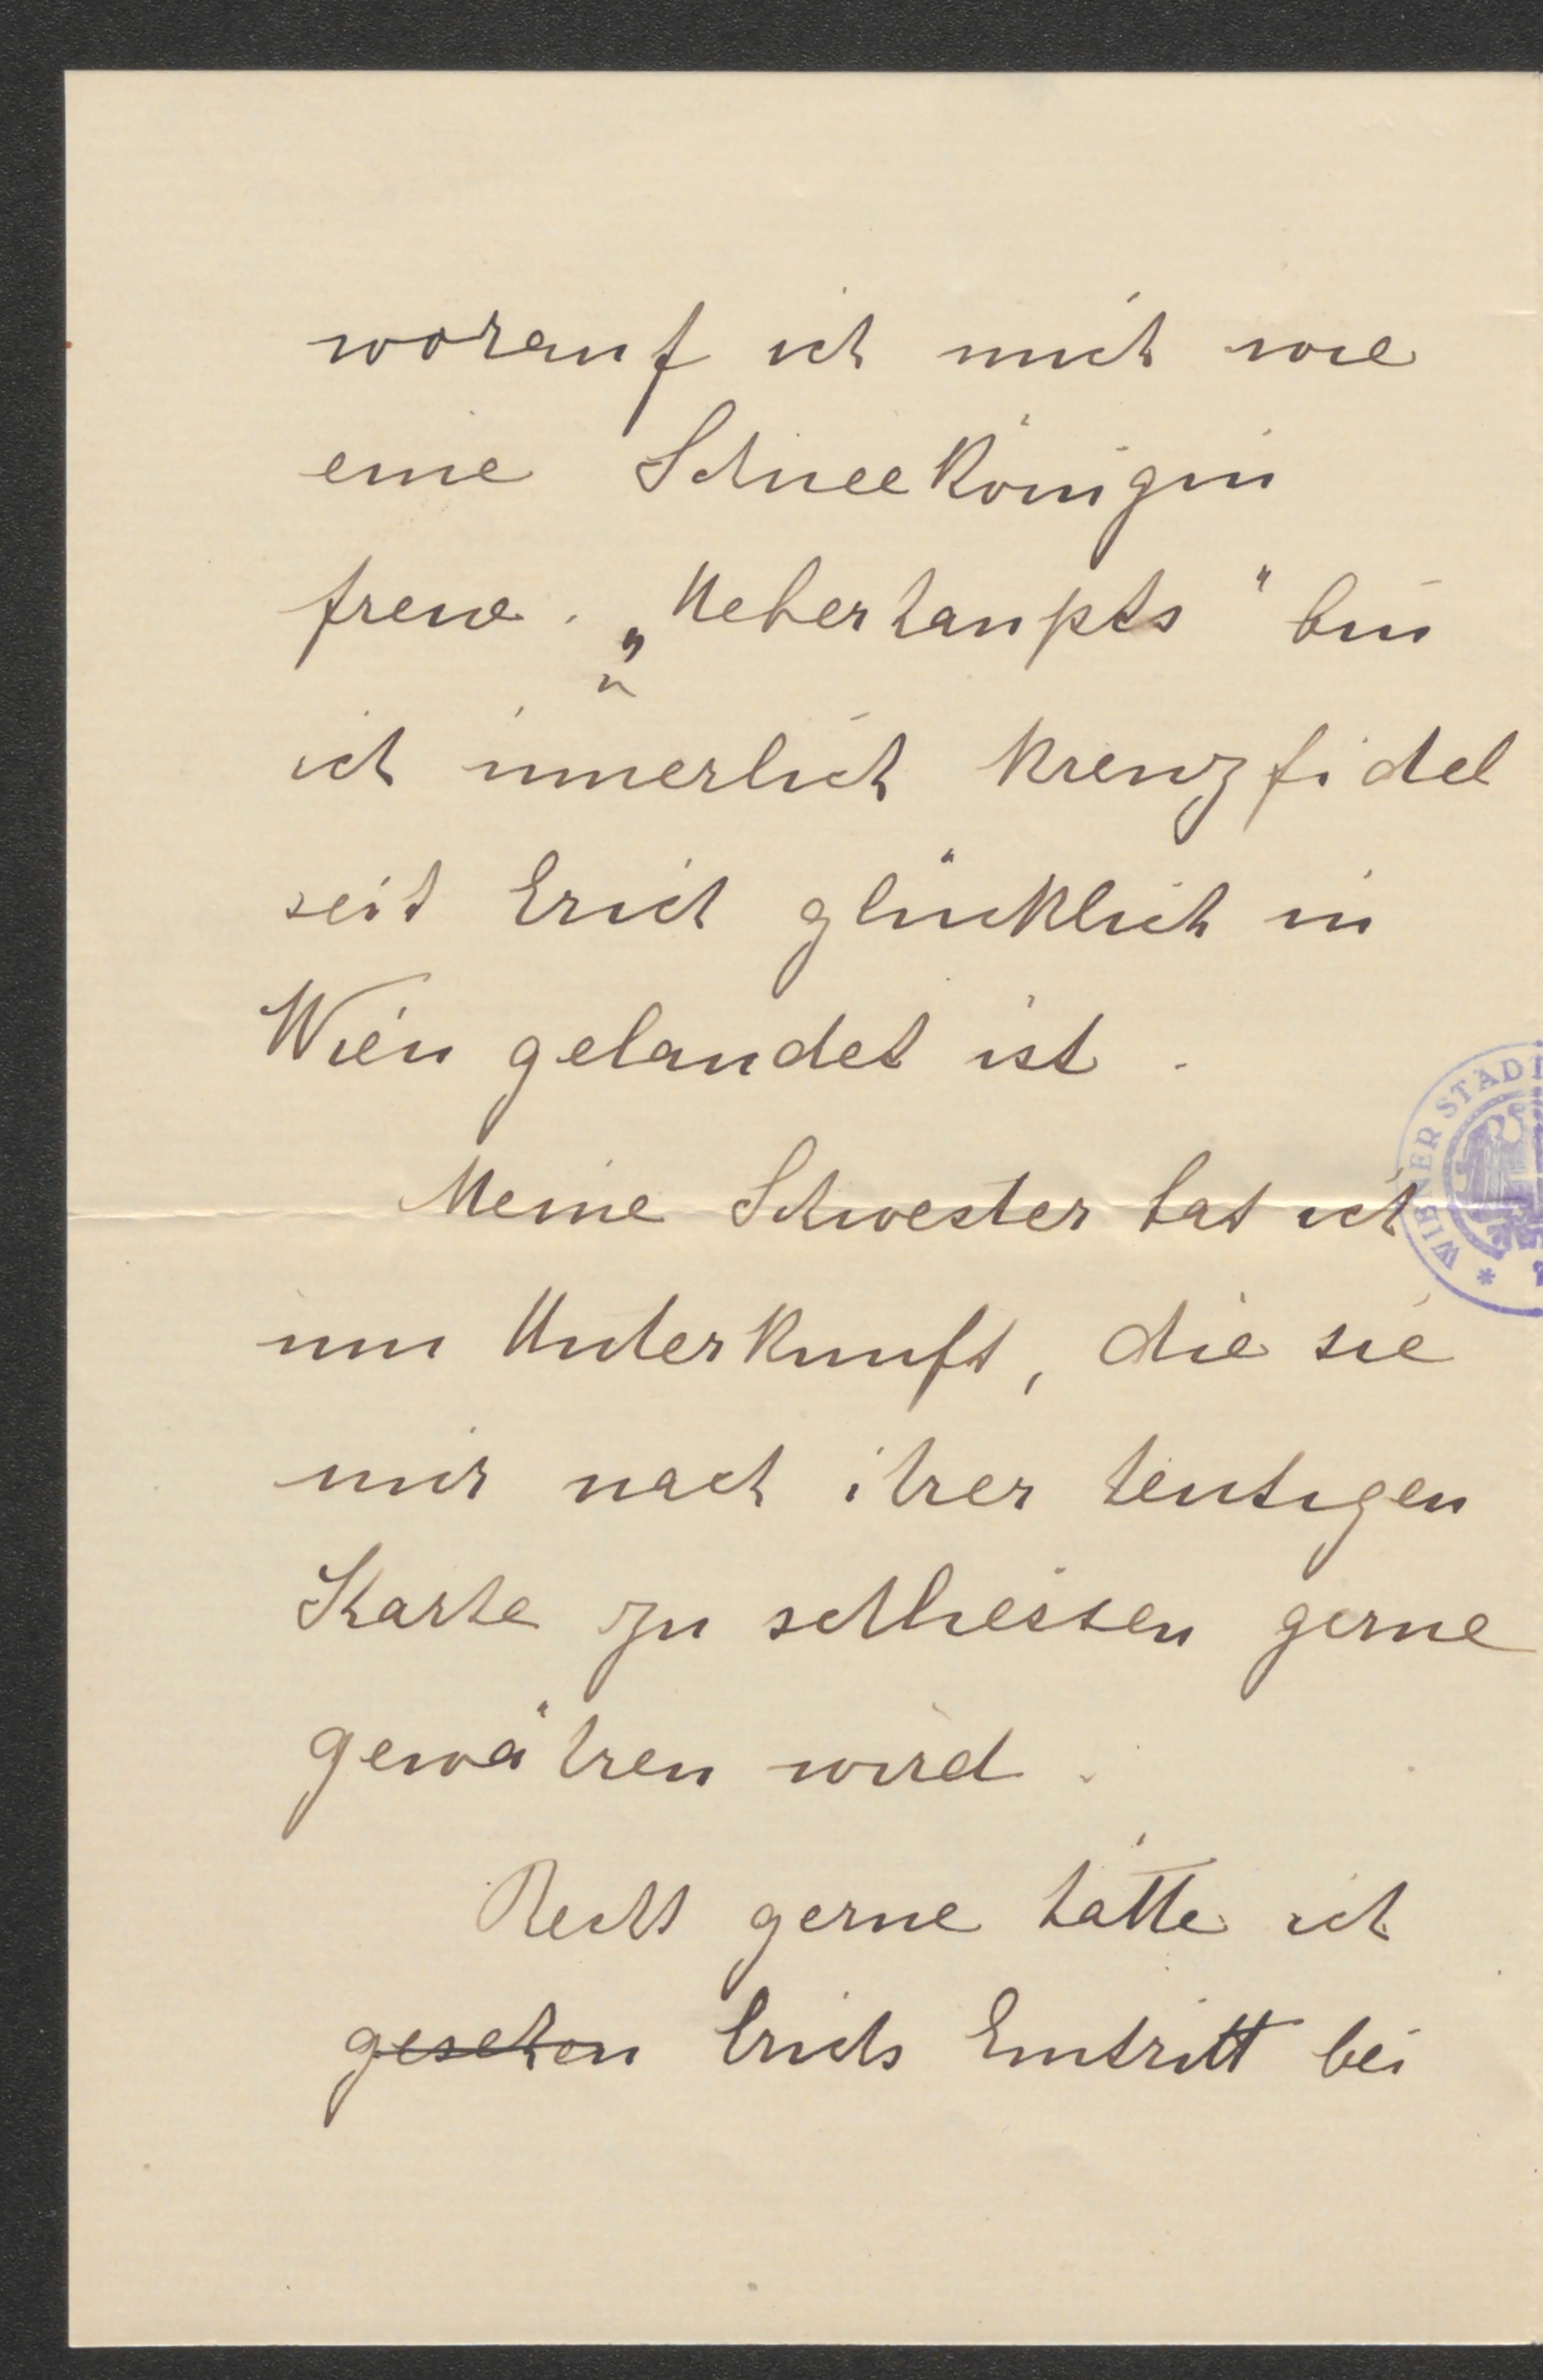 worauf ich mich wie
eine Schneekönigin
freue. „Ueberhaupts" bin
ich innerlich kreuzfidel
seit Erich glücklich in
Wien gelandet ist.
Meine Schwester bat ich
um Unterkunft, die sie
mir nach ihrer heutigen
Karte zu schliessen gerne
gewähren wird.
Recht gerne hätte ich
gesehen Erichs Eintritt bei
WIENER STADT